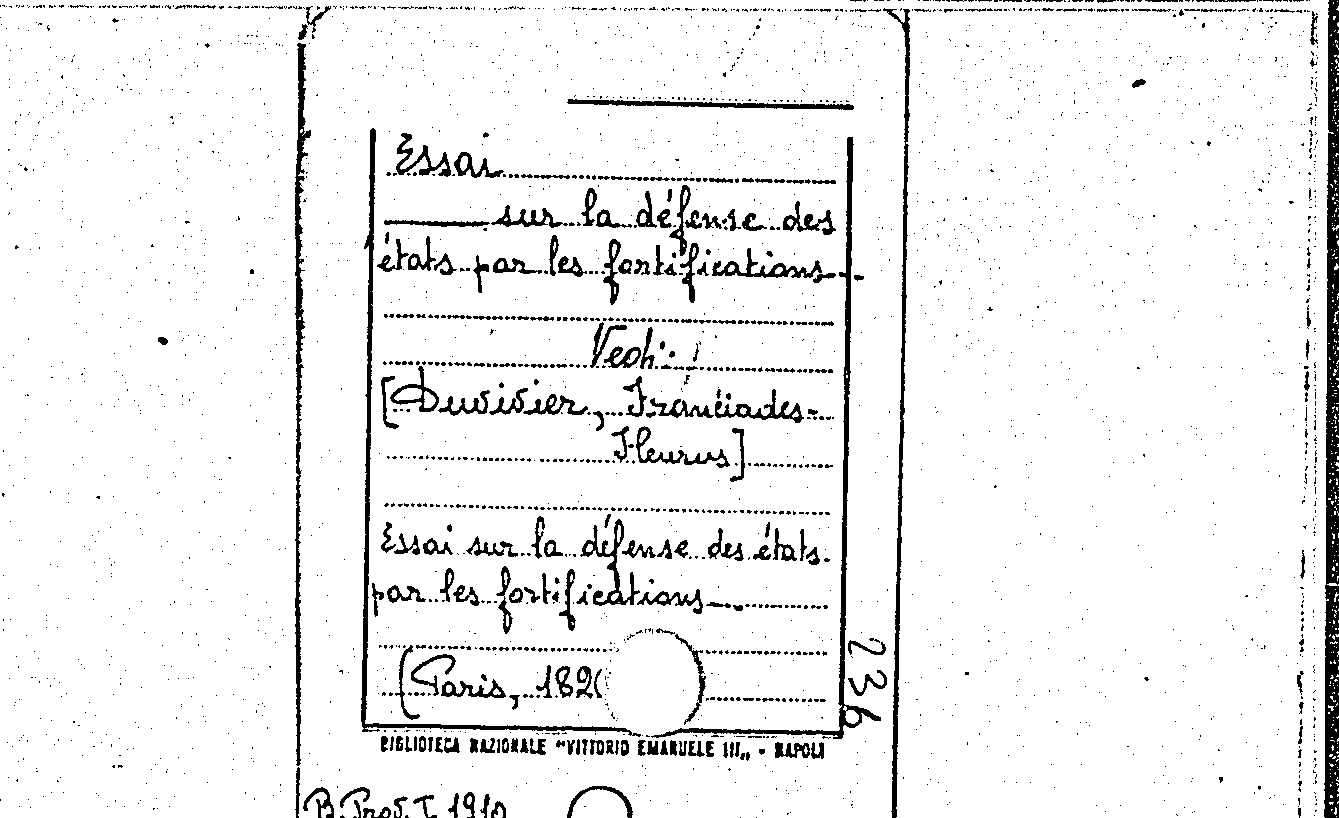 Essai
sur la défense des
états par les fortifications
Vedi:
[Duvivier, Franciades-
Fleurus]
Essai sur la défense des états
par les fortifications
(Paris, 182
236
BIBLIOTECA NAZIONALE "VITTORIO EMANUELE III„ - NAPOLI
B. Prov. I. 1910